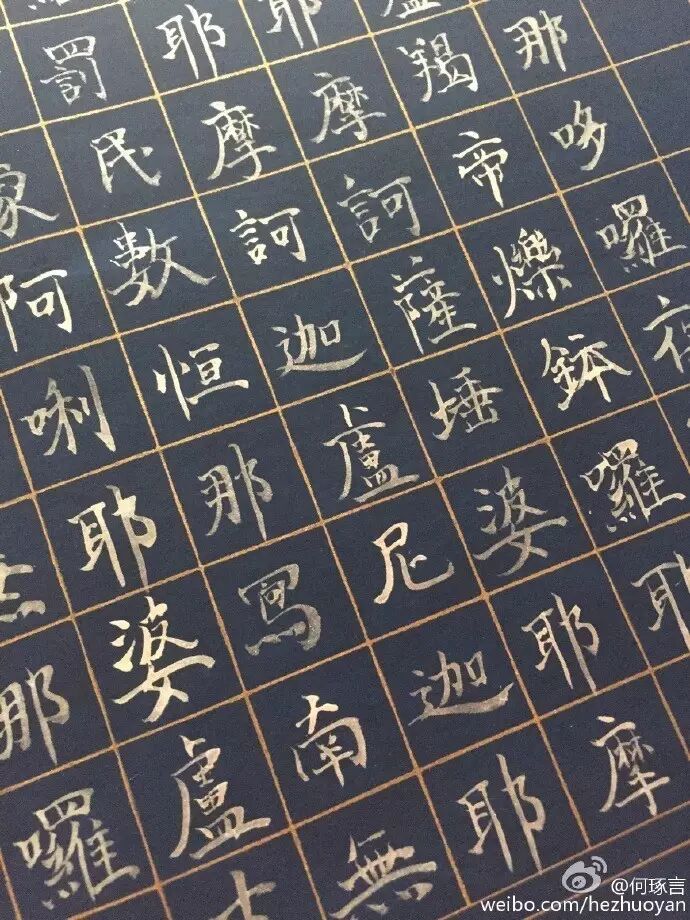 那哆囉夜
羯帝爍鉢囉耶
耶摩訶薩埵婆耶摩
耶摩訶迦盧尼迦耶
罰民數恒那寫南無
阿唎耶婆盧
無那囉
@何琢言
weibo.com/hezhuoyan